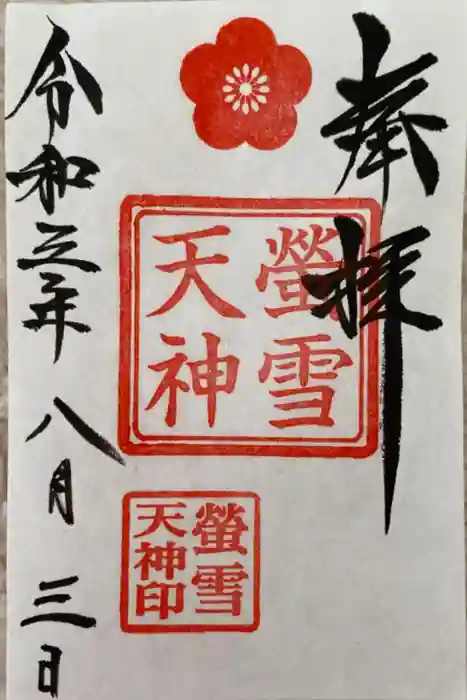 奉拝
螢雪
天神
螢雪
天神印
令和三年八月三日